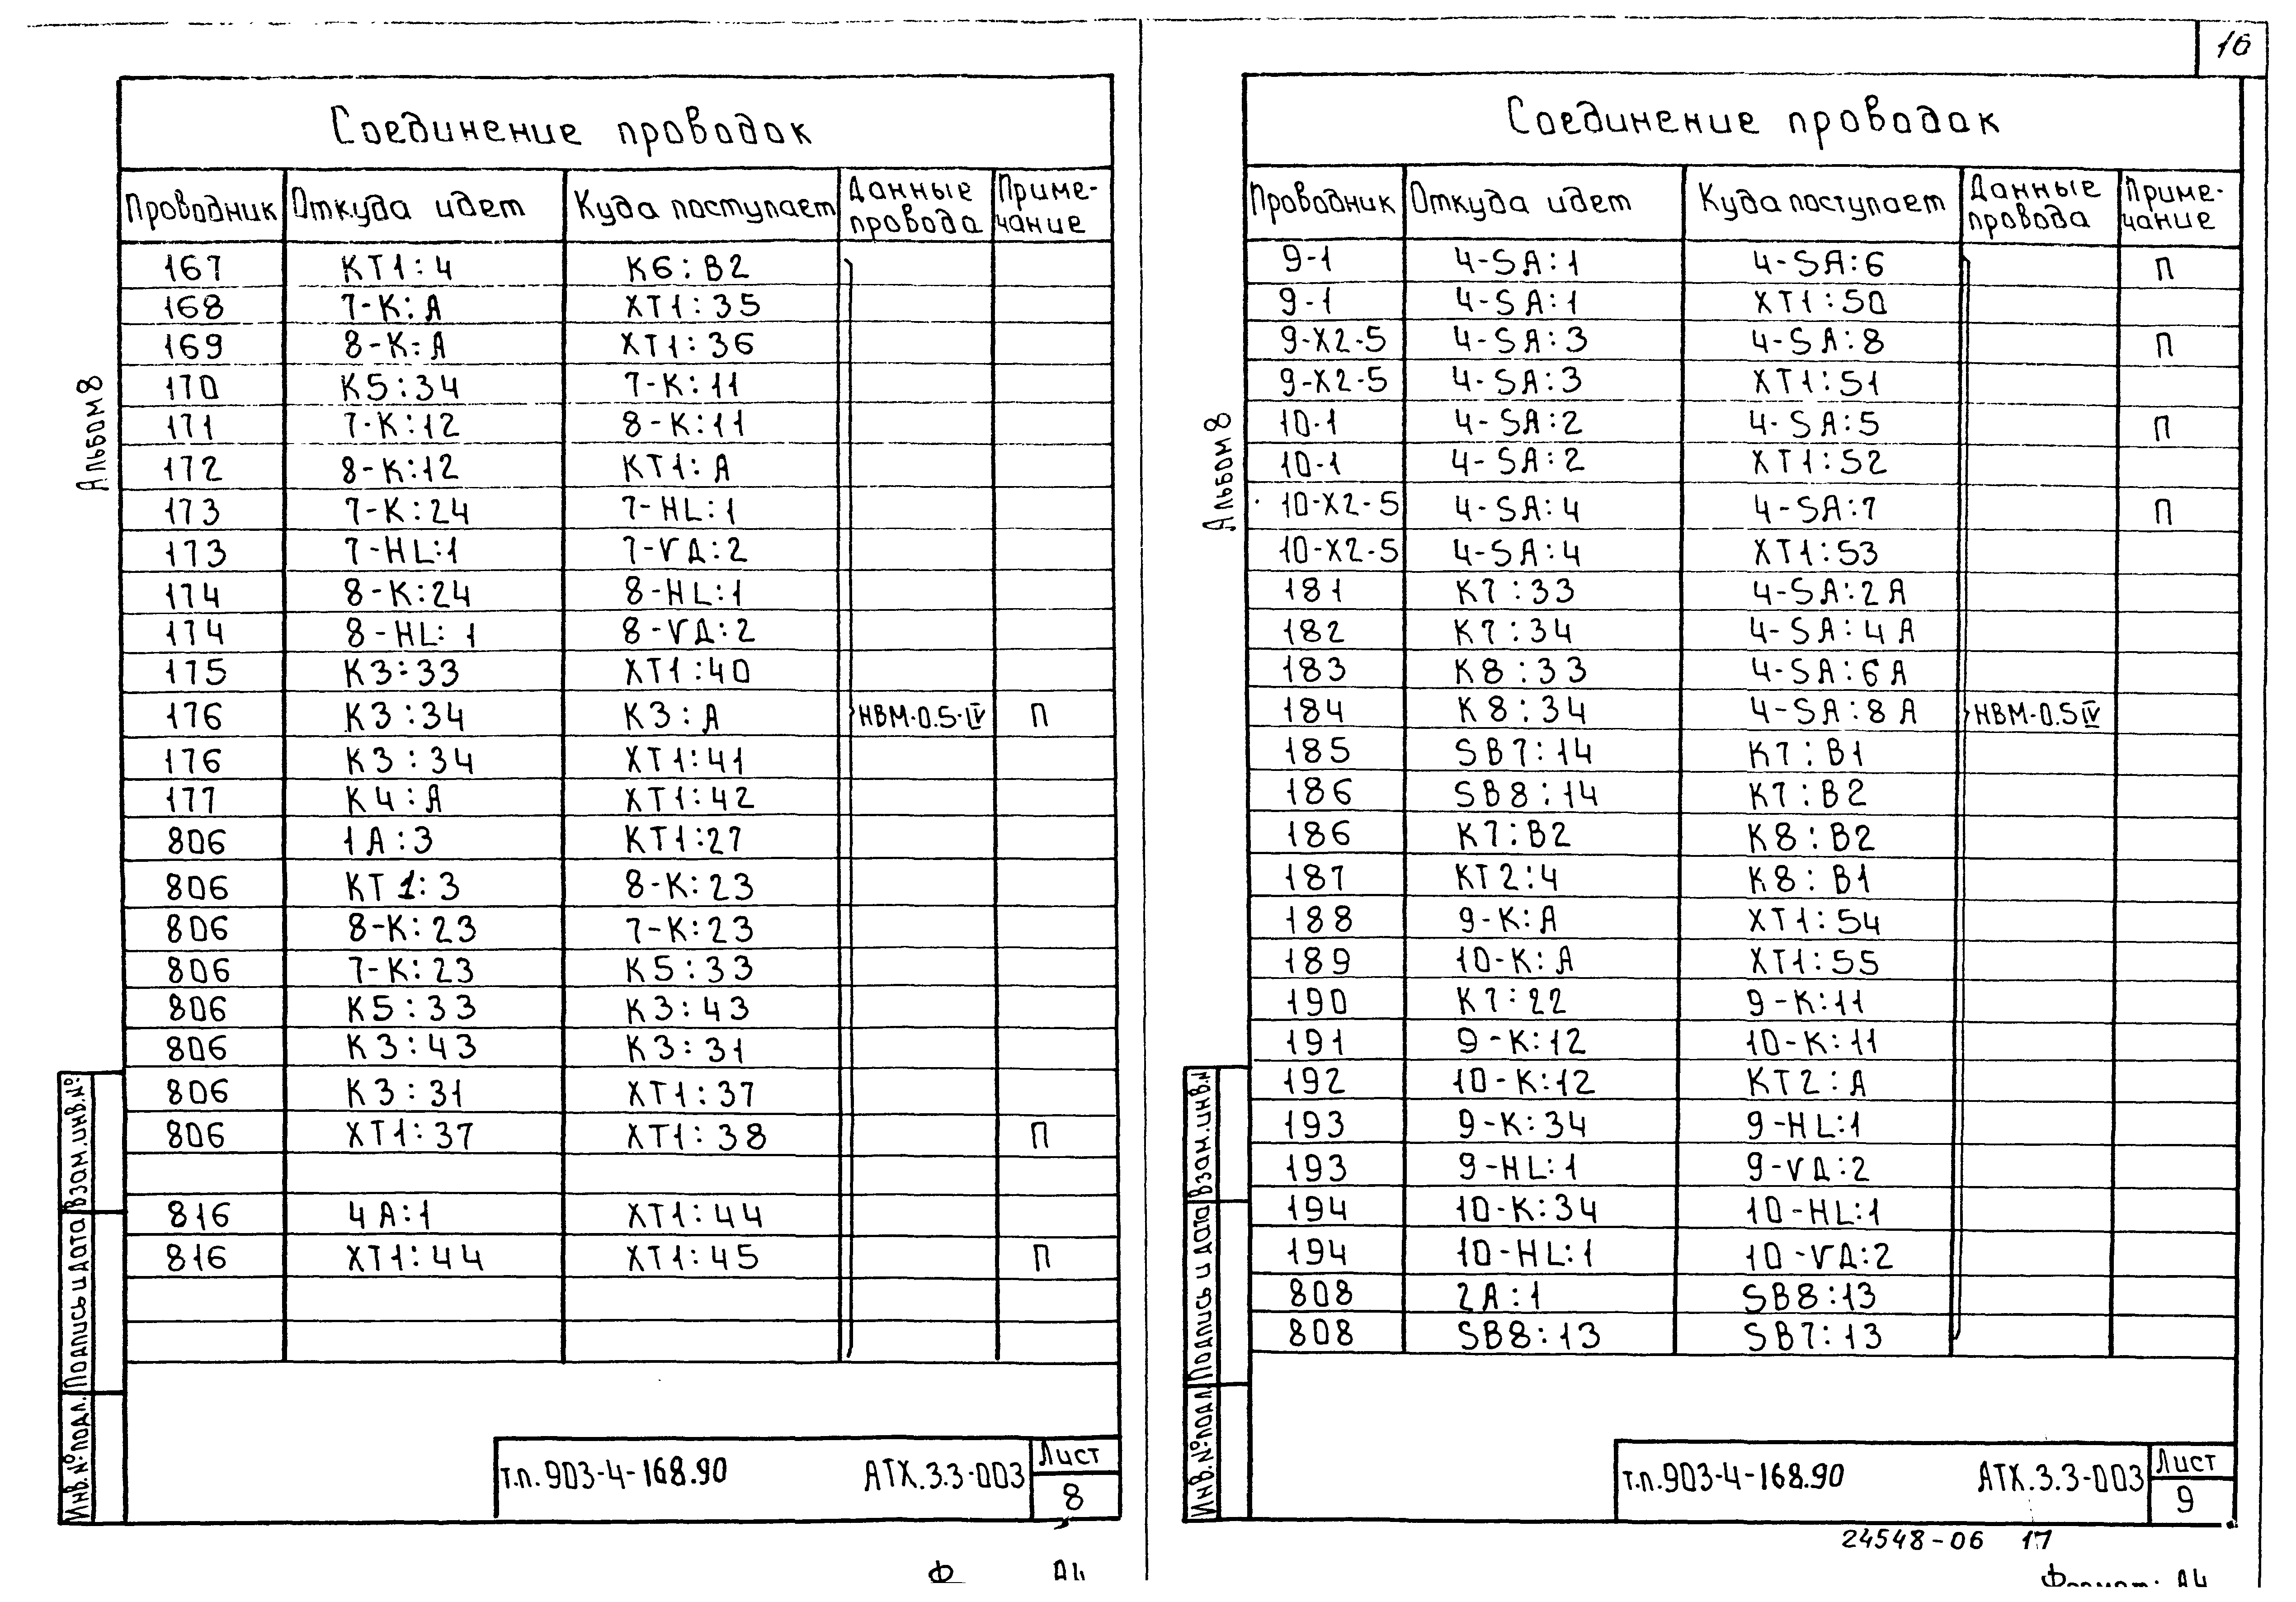 16
Альбом 8
Соединение проводок
Проводник Откуда идет Куда поступает Данные провода Приме-чание
167 КТ1:4 К6:В2
168 7-К:А ХТ1:35
169 8-К:А ХТ1:36
170 К5:34 7-К:11
171 7-К:12 8-К:11
172 8-К:12 КТ1:А
173 7-К:24 7-HL:1
173 7-HL:1 7-VД:2
174 8-К:24 8-HL:1
174 8-HL:1 8-VД:2
175 К3:33 ХТ1:40
176 К3:34 К3:А НВМ-0.5-IV П
176 К3:34 ХТ1:41
177 К4:А ХТ1:42
806 1А:3 КТ1:27
806 КТ1:3 8-К:23
806 8-К:23 7-К:23
806 7-К:23 К5:33
806 К5:33 К3:43
806 К3:43 К3:31
806 К3:31 ХТ1:37
806 ХТ1:37 ХТ1:38 П
816 4А:1 ХТ1:44
816 ХТ1:44 ХТ1:45 П
Инв.№подл. Подпись и дата Взам.инв.№
т.п.903-4-168.90 АТХ.3.3-003 Лист 8
Альбом 8
Соединение проводок
Проводник Откуда идет Куда поступает Данные провода Приме-чание
9-1 4-SA:1 4-SA:6 П
9-1 4-SA:1 ХТ1:50
9-Х2-5 4-SA:3 4-SA:8 П
9-Х2-5 4-SA:3 ХТ1:51
10-1 4-SA:2 4-SA:5 П
10-1 4-SA:2 ХТ1:52
10-Х2-5 4-SA:4 4-SA:7 П
10-Х2-5 4-SA:4 ХТ1:53
181 К7:33 4-SA:2A
182 К7:34 4-SA:4A
183 К8:33 4-SA:6A
184 К8:34 4-SA:8A НВМ-0.5 IV
185 SB7:14 К7:В1
186 SB8:14 К7:В2
186 К7:В2 К8:В2
187 КТ2:4 К8:В1
188 9-К:А ХТ1:54
189 10-К:А ХТ1:55
190 К7:22 9-К:11
191 9-К:12 10-К:11
192 10-К:12 КТ2:А
193 9-К:34 9-HL:1
193 9-HL:1 9-VД:2
194 10-К:34 10-HL:1
194 10-HL:1 10-VД:2
808 2А:1 SB8:13
808 SB8:13 SB7:13
Инв.№подл. Подпись и дата Взам.инв.№
т.п.903-4-168.90 АТХ.3.3-003 Лист 9
24548-06 17
Формат: А4